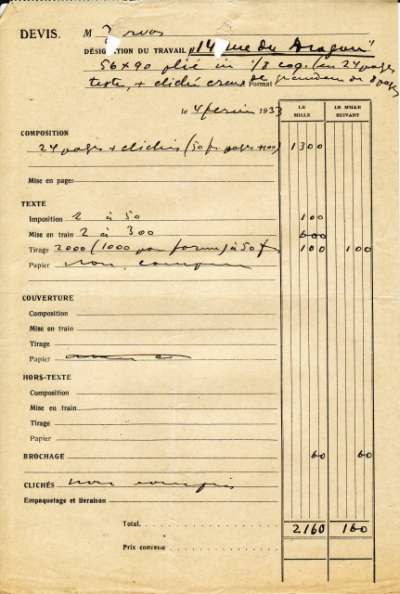 DEVIS. M Zervos
DÉSIGNATION DU TRAVAIL "14 rue du Dragon"
56 x 90 plié in 1/8 (en 24 pages
texte, + cliché creux de grandeur de 8 pages
Format
le 4 février 1933
LE MILLE
LE MILLE SUIVANT
COMPOSITION
24 pages + clichés (50 fr. pages 1300
Mise en pages
TEXTE
Imposition 2 à 50 100
Mise en train 2 à 300 600
Tirage 2000 (1000 par forme) à 50 f 100 100
Papier non compris
COUVERTURE
Composition
Mise en train
Tirage
Papier
HORS-TEXTE
Composition
Mise en train
Tirage
Papier
BROCHAGE 60 60
CLICHÉS non compris
Empaquetage et livraison
Total. 2160 160
Prix convenu